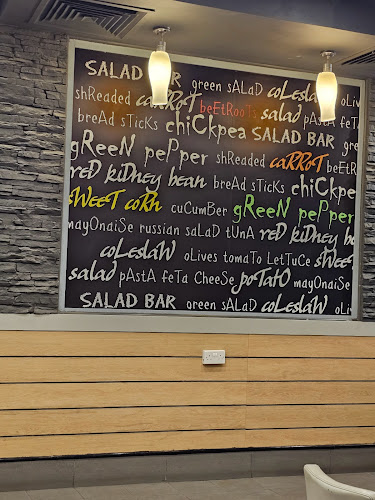 SALAD BAR green sALaD coLesLaW oLiv
shReaded caRRoT beEtRooTs salad pAstA feTA
breAd sTicKs chiCkpea SALAD BAR gre
gReeN pePper shReaded caRRoT beEtR
reD kiDNey bean breAD sTicKs chiCKpe
sWeeT coRn cuCumBer gReeN pePper
mayOnaiSe russian saLaD tUnA reD kiDNey be
coLesLaW oLives tomaTo LeTtuCe sWeeT
salad pAstA feTa CheeSe poTatO mayOnaiSe
SALAD BAR green sALaD coLesLaW oLi